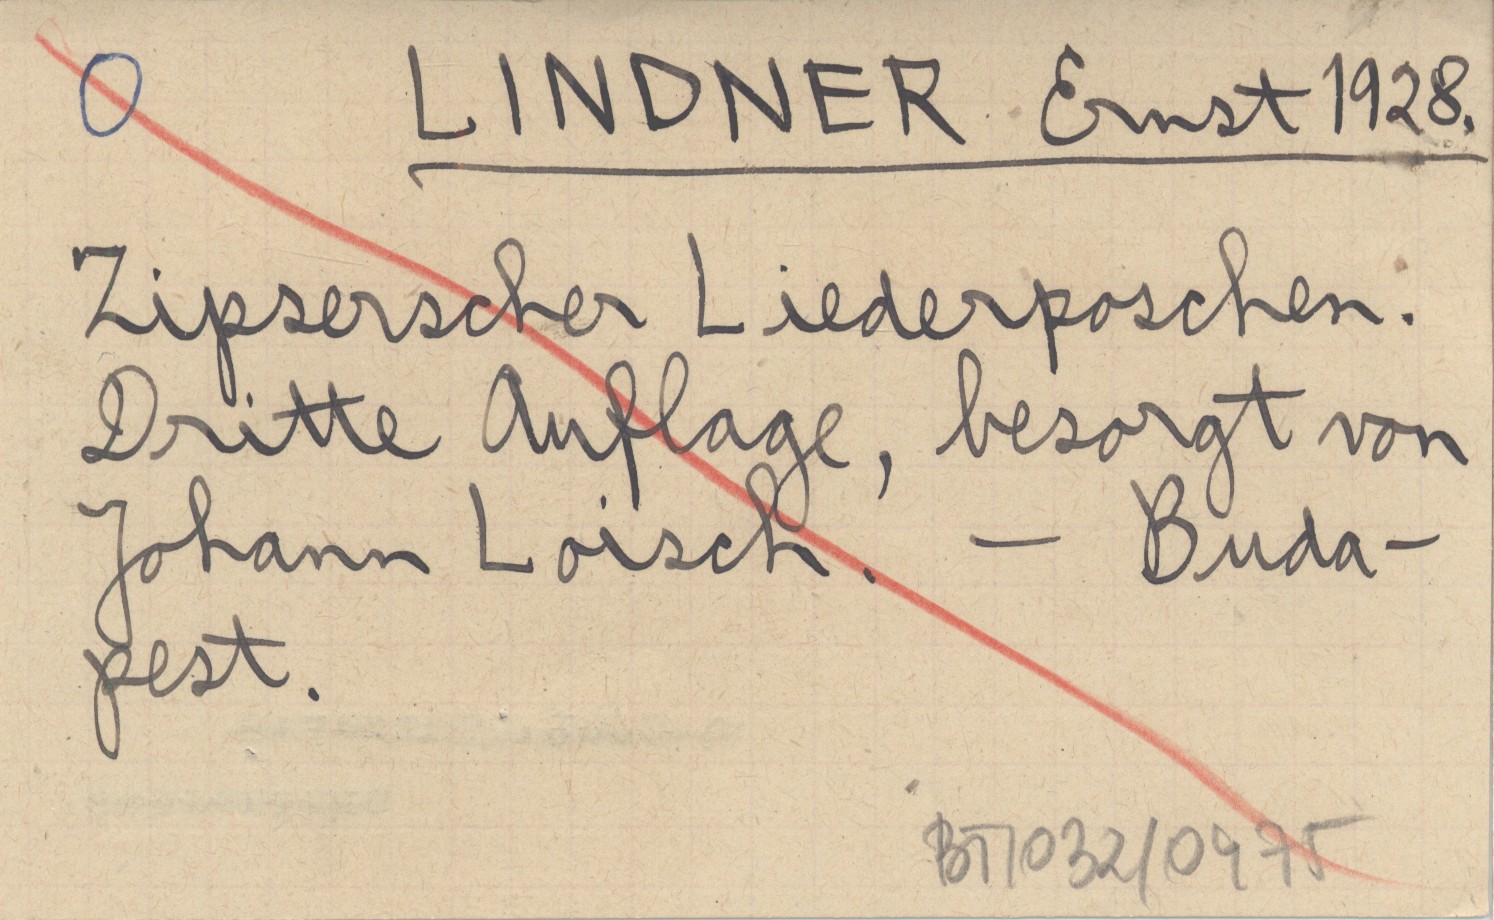 O LINDNER Ernst 1928.
Zipserscher Liederposchen.
Dritte Auflage, besorgt von
Johann Loisch. — Buda-
pest.
BTI032/0975